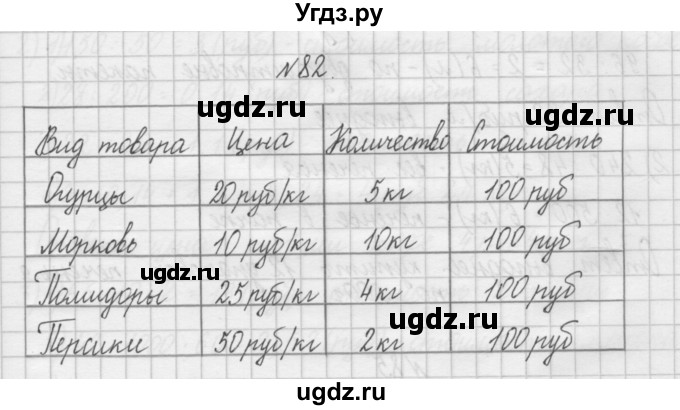 Угдз.ру
№82.
Вид товара Цена Количество Стоимость
Огурцы 20 руб/кг 5 кг 100 руб
Морковь 10 руб/кг 10 кг 100 руб
Помидоры 25 руб/кг 4 кг 100 руб
Персики 50 руб/кг 2 кг 100 руб
ugdz.ru
ugdz.ru
ugdz.ru
ugdz.ru
ugdz.ru